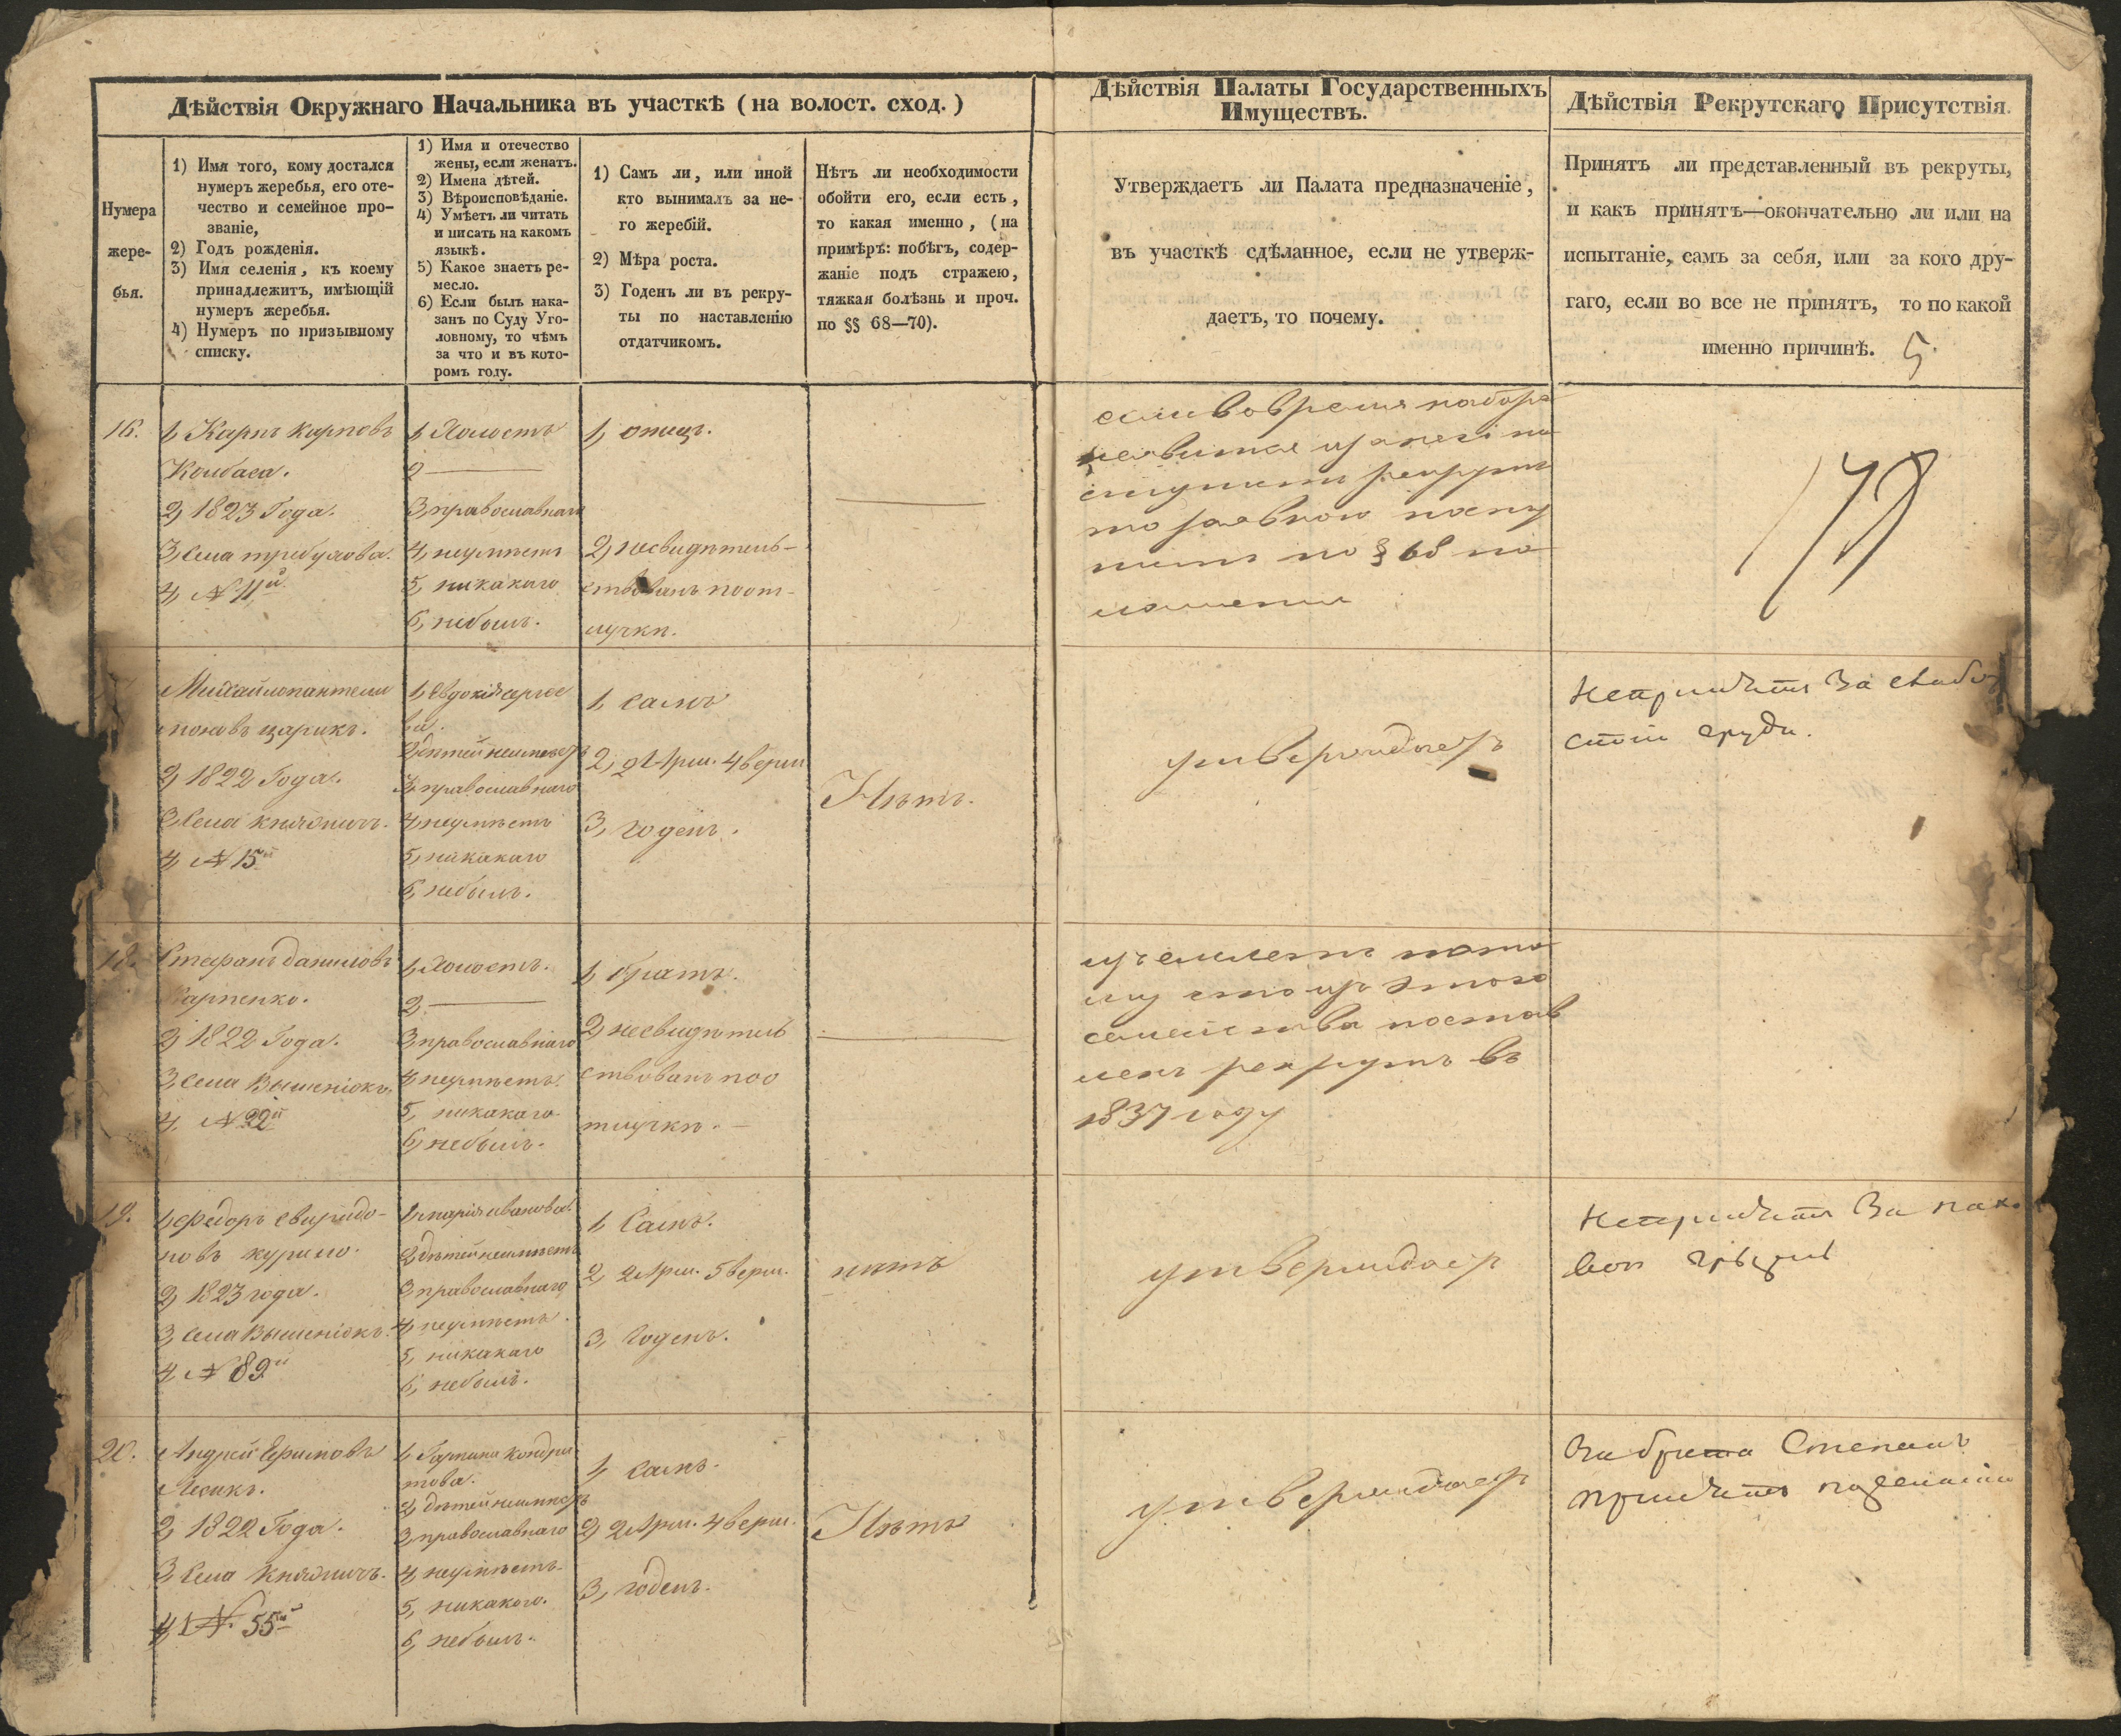 Дѣйствія Окружнаго Начальника въ участкѣ (на волост. сход.)
Нумера
жере-
бья.
1) Имя того, кому достался
нумеръ жеребья, его оте-
чество и семейное про-
званіе,
2) Годъ рожденія.
3) Имя селенія, къ коему
принадлежитъ, имѣющій
нумеръ жеребья.
4) Нумеръ по призывному
списку.
1) Имя и отечество
жены, если женатъ.
2) Имена дѣтей.
3) Вѣроисповѣданіе.
4) Умѣетъ ли читать
и писать на какомъ
языкѣ.
5) Какое знаетъ ре-
месло.
6) Если былъ нака-
занъ по Суду Уго-
ловному, то чѣмъ
за что и въ кото-
ромъ году.
1) Самъ ли, или иной
кто вынималъ за не-
го жеребій.
2) Мѣра роста.
3) Годенъ ли въ рекру-
ты по наставленію
отдатчикомъ.
Нѣтъ ли необходимости
обойти его, если есть,
то какая именно, (на
примѣръ: побѣгъ, содер-
жаніе подъ стражею,
тяжкая болѣзнь и проч.
по §§ 68—70).
Дѣйствія Палаты Государственныхъ
Имуществъ.
Утверждаетъ ли Палата предназначеніе,
въ участкѣ сдѣланное, если не утверж-
даетъ, то почему.
Дѣйствія Рекрутскаго Присутствія.
Принятъ ли представленный въ рекруты,
и какъ принятъ—окончательно ли или на
испытаніе, самъ за себя, или за кого дру-
гаго, если во все не принятъ, то по какой
именно причинѣ. 5
16.
1, Карпъ Карповъ
Ковбаса.
2, 1823 Года.
3, Села требухова.
4, № 11й
1, Холостъ
2 —
3, православнаго
4, неумѣетъ
5, никакаго
6, небылъ.
1, отецъ.
2, несвидѣтель-
ствованъ поот-
лучкѣ.
—
если во время набора
рекрутъ
по § 68 по
Михайло пантели
моновъ царикъ.
2, 1822 Года.
3, Села княжичъ.
4, № 15й
1, Евдокія
ва.
2, дѣтей неимѣетъ
3, православнаго
4, неумѣетъ
5, никакаго
6, небылъ.
1, самъ
2, 2 Арш. 4 верш
3, годенъ.
Нѣтъ.
утверждаетъ
Непринятъ За слабо
стію груди.
18.
Стефанъ даниловъ
Карпенко.
2, 1822 Года.
3, Села Вишеніокъ.
4, № 22й
1, Холостъ.
2, —
3, православнаго
4, неумѣетъ.
5, никакаго
6, небылъ.
1, братъ.
2, несвидѣтель
ствованъ поо
тлучкѣ. —
—
пото
му что изъ этого
семейства постав
ленъ рекрутъ въ
1837 году
19.
1, Федоръ Свиридо-
новъ курило.
2, 1823 года.
3, Села Вишеніокъ.
4, № 89й
1, марія иванова.
2, дѣтей неимѣетъ
3, православнаго
4, неумѣетъ.
5, никакаго
6, небылъ.
1, Самъ.
2, 2 Арш. 5 верш.
3, Годенъ.
нѣтъ
утверждаетъ
Непринятъ За пахо
вой
20.
Андрей Ефимовъ
Лесикъ.
2, 1822 Года.
3, Села Княжичъ.
4, № 55й
1, Гарпина Кондра
това.
2, дѣтей неимѣетъ
3, православнаго
4, неумѣетъ.
5, никакого.
6, небылъ.
1, самъ.
2, 2 Арш. 4 верш.
3, годенъ.
Нѣтъ
утверждаетъ
За брата
принятъ